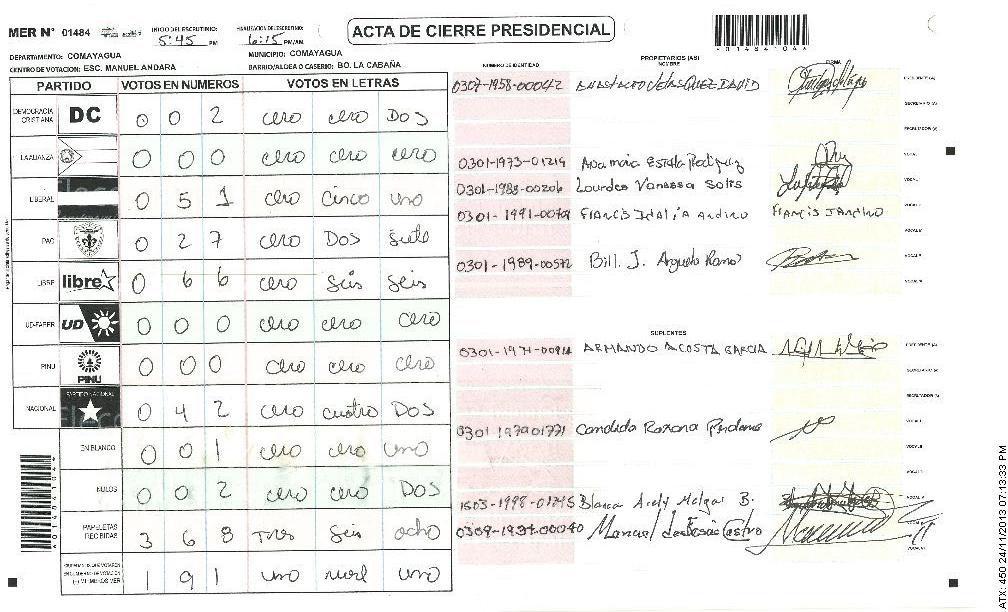 MER N° 01484
INICIO DEL ESCRUTINIO: 5:45 PM
FINALIZACION DEL ESCRUTINIO: 6:15 PM/AM
ACTA DE CIERRE PRESIDENCIAL
DEPARTAMENTO: COMAYAGUA
MUNICIPIO: COMAYAGUA
CENTRO DE VOTACION: ESC. MANUEL ANDARA
BARRIO/ALDEA O CASERIO: BO. LA CABAÑA
PARTIDO VOTOS EN NUMEROS VOTOS EN LETRAS
DEMOCRACIA CRISTIANA DC 0 0 2 cero cero Dos
LA ALIANZA 0 0 0 cero cero cero
LIBERAL 0 5 1 cero Cinco uno
PAC 0 2 7 cero Dos Siete
LIBRE libre 0 6 6 cero seis seis
UD-FAPER UD 0 0 0 cero cero cero
PINU PINU 0 0 0 cero cero cero
NACIONAL PARTIDO NACIONAL 0 4 2 cero cuatro Dos
EN BLANCO 0 0 1 cero cero uno
NULOS 0 0 2 cero cero Dos
PAPELETAS RECIBIDAS 3 6 8 Tres Seis ocho
1 9 1 uno nueve uno
NUMERO DE IDENTIDAD
PROPIETARIOS (AS)
NOMBRE
FIRMA
0307-1958-00042
PRESIDENTE (A)
SECRETARIO (A)
ESCRUTADOR (A)
0301-1973-01214 Ana maria Estela Rodriguez
0301-1988-00206 Lourdes Vanessa Solis
0301-1989-00572 Bill. J. Argueta Ramos
SUPLENTES
ARMANDO ACOSTA GARCIA
PRESIDENTE (A)
SECRETARIO (A)
ESCRUTADOR (A)
0301 1979 01771 Candida Roxana
1503-1998-01245 Blanca Arely Melgar B.
Manuel Castro
ATX: 450 24/11/2013 07:13:33 PM